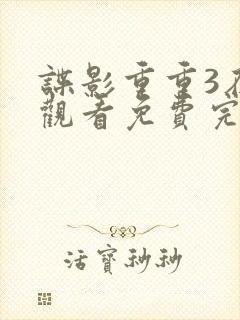 諜影重重3在
觀看免費完
活寶秒秒